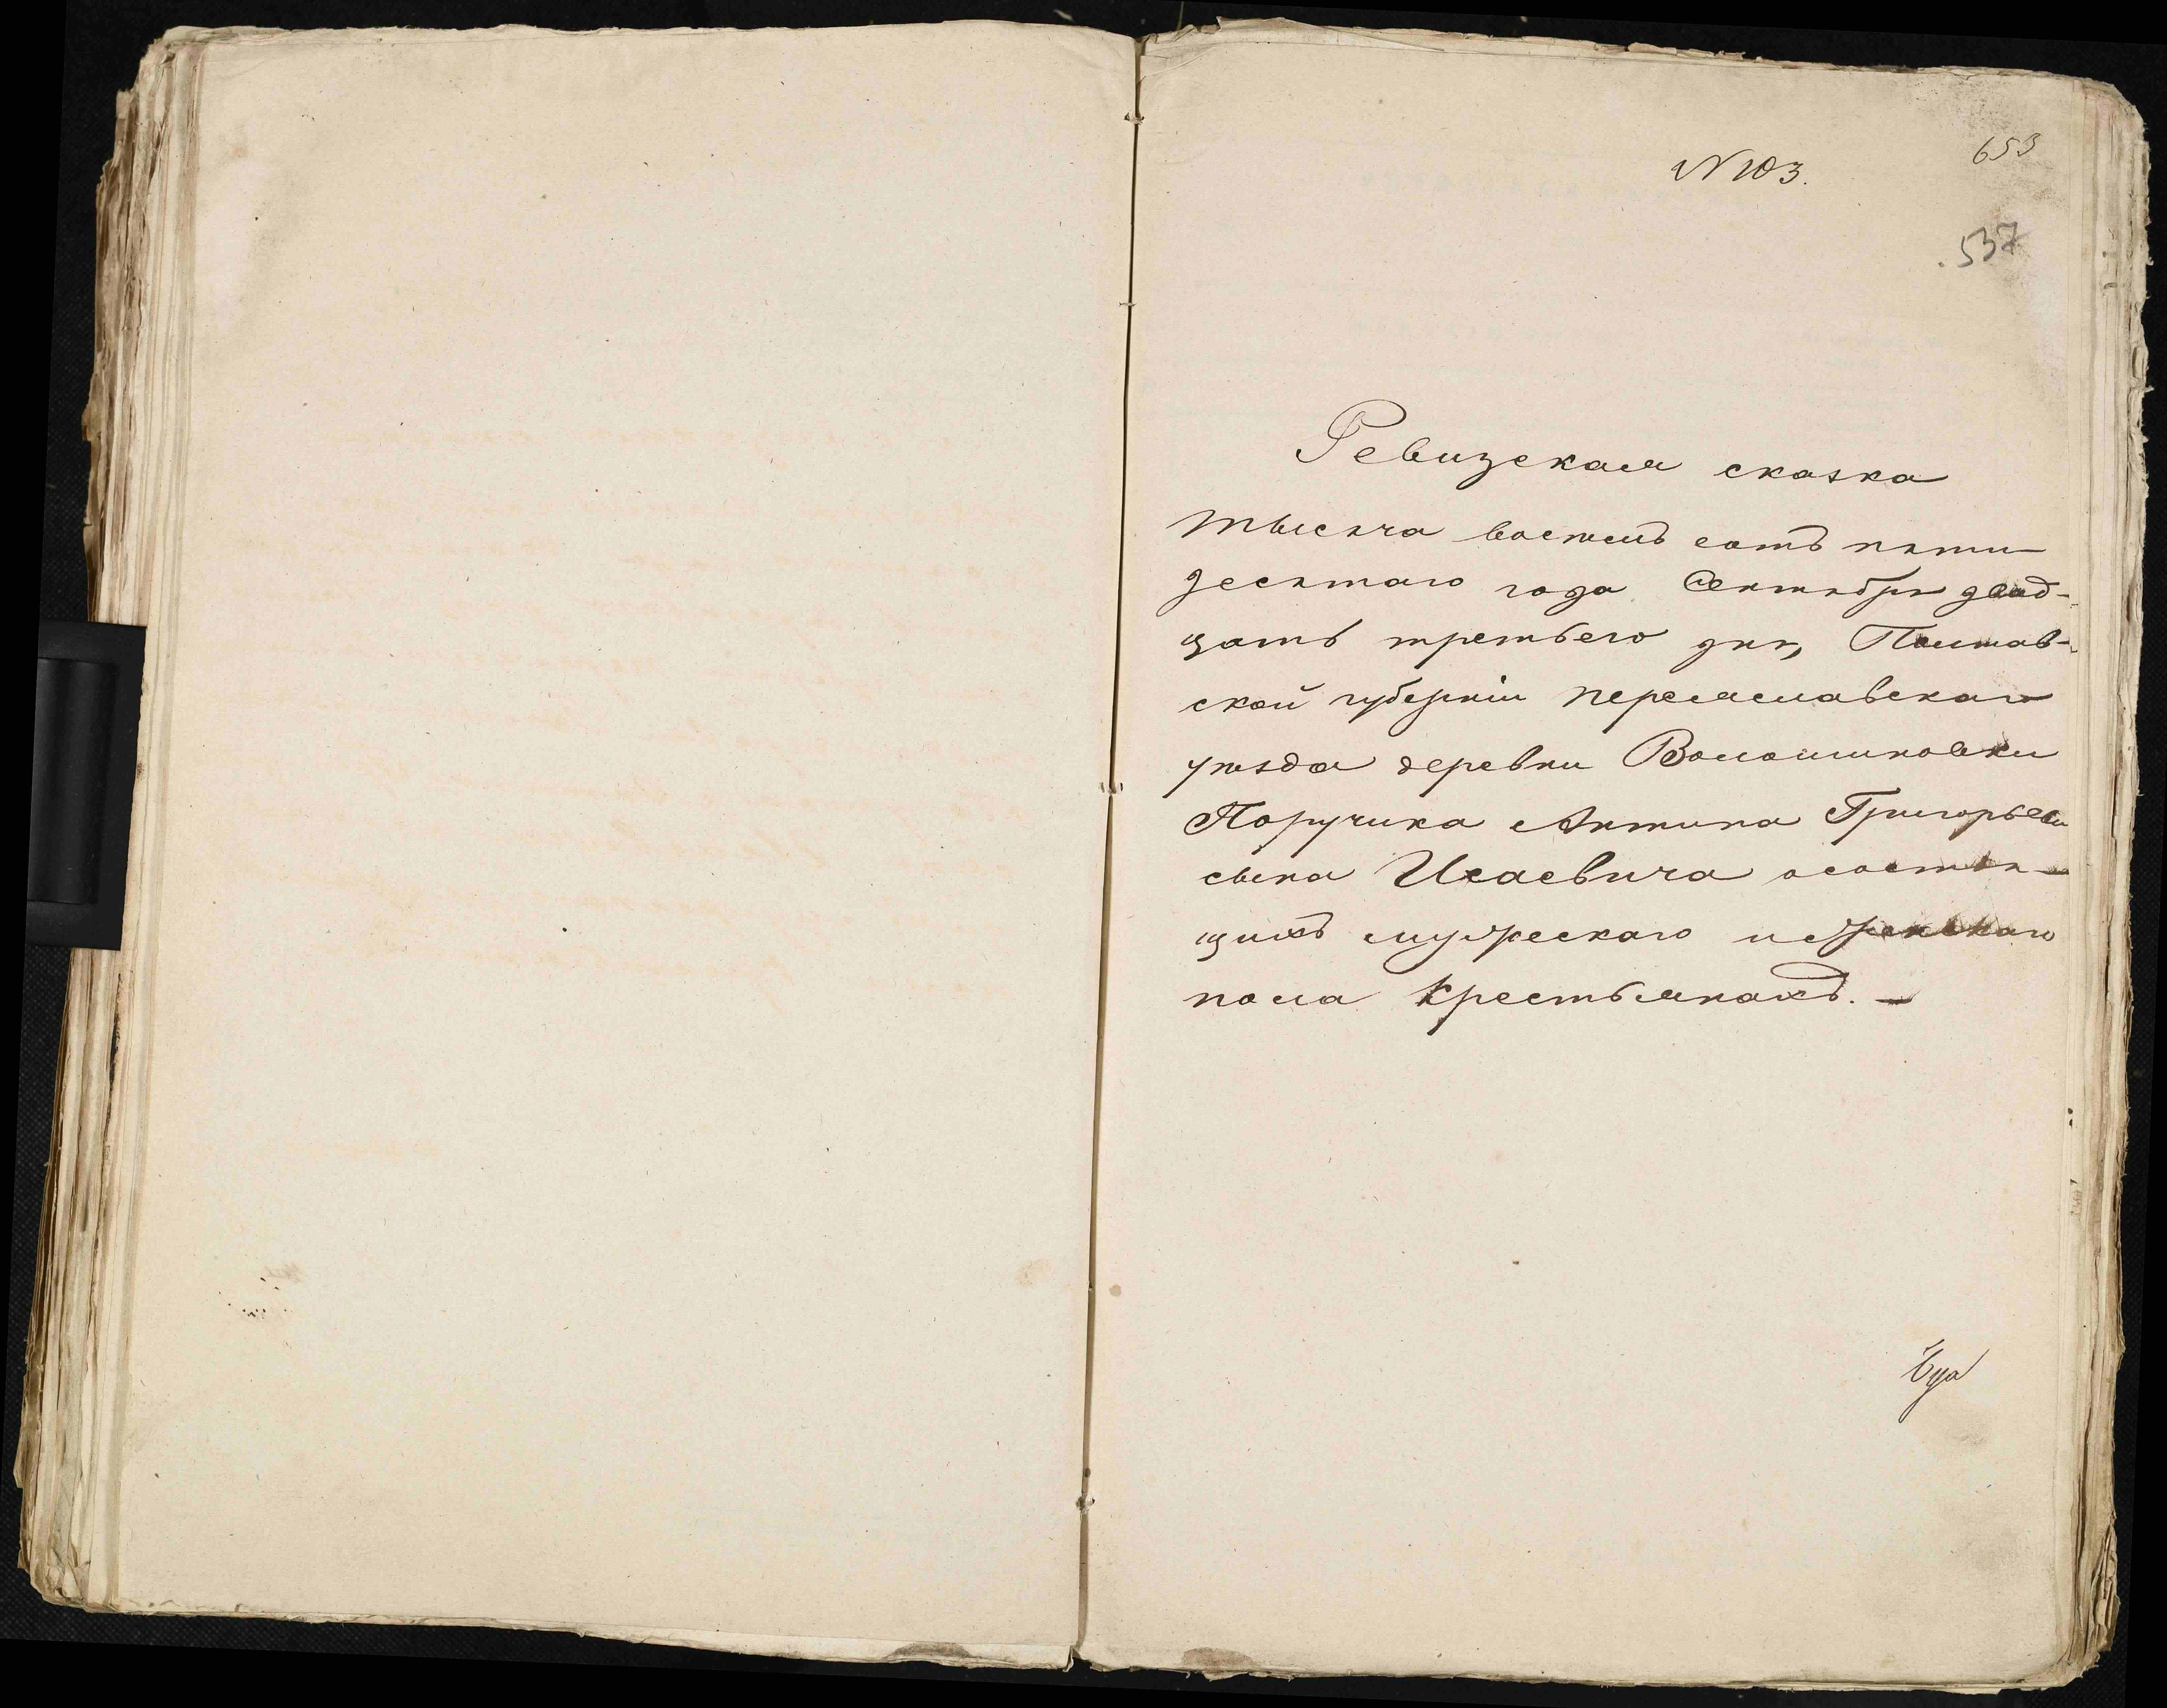 653
N 103.
537
Ревизская сказка
тысяча восемь сотъ пяти
десятаго года Сентября двад-
цать третьего дня, Полтав-
ской губерніи Переяславскаго
уезда деревни Волошиновки
Поручика Антина Григорьева
сына Исаевича о состоя-
щихъ мужескаго и женскаго
пола Крестьянахъ. —